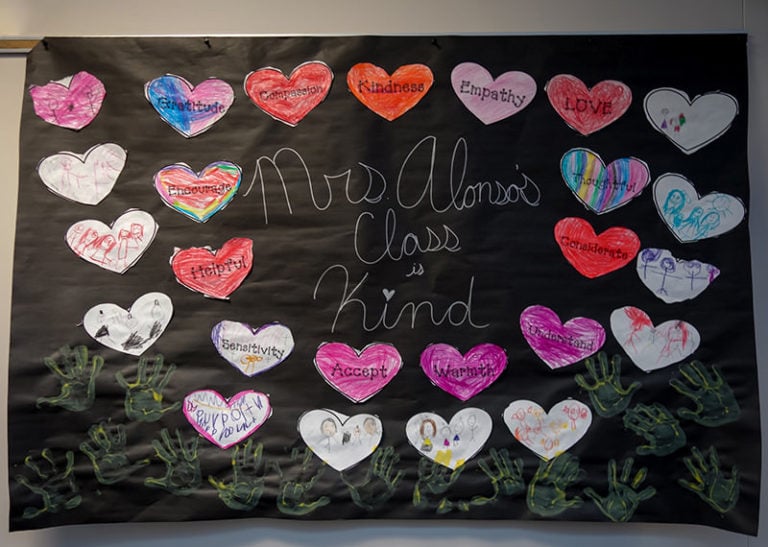 Gratitude
Compassion
Kindness
Empathy
LOVE
Encourage
Thoughtful
Mrs. Alonso's
Class
is
Kind
Helpful
Considerate
Sensitivity
Understand
Accept
Warmth